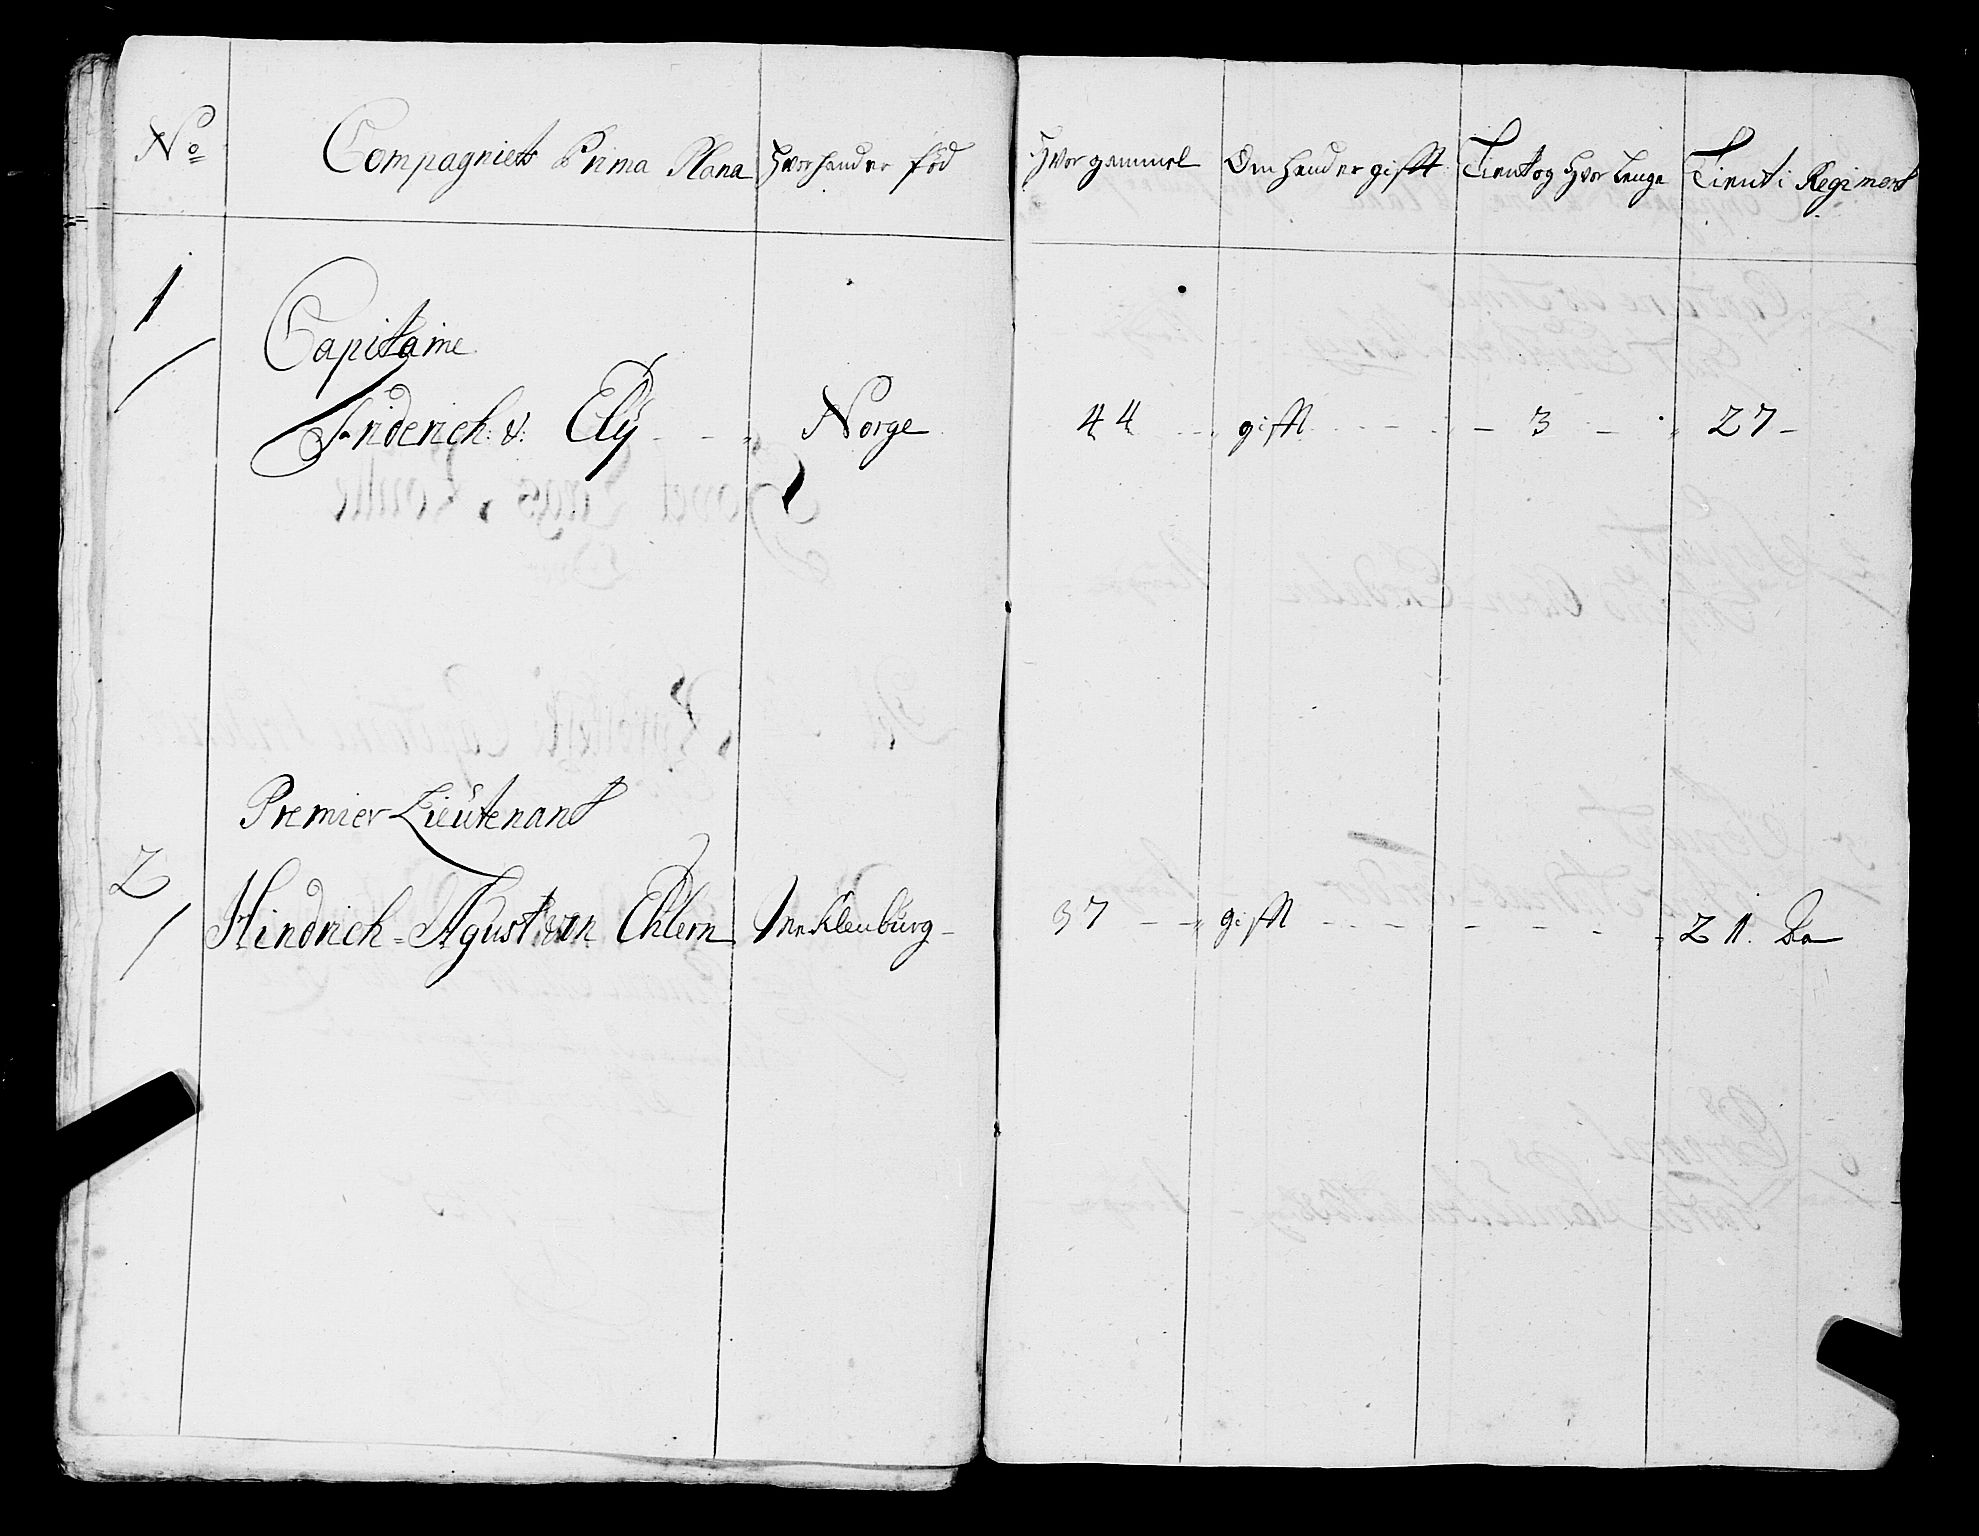 No Compagniets Prima Plana Hvor hand er föd Hvor gammel Om hand er gifft Tient og Hvor Lenge Tient i Regiment
1
Capitaine
Friderich: v: Elÿ - - „ Norge 44 - „ gifft - - - - 3 - „ 27 -
Premier Lieutenant
2
Hindrich = Agust von Ehlern Mecklenburg - 37 - - „ gifft - - - - - - - „ 21.